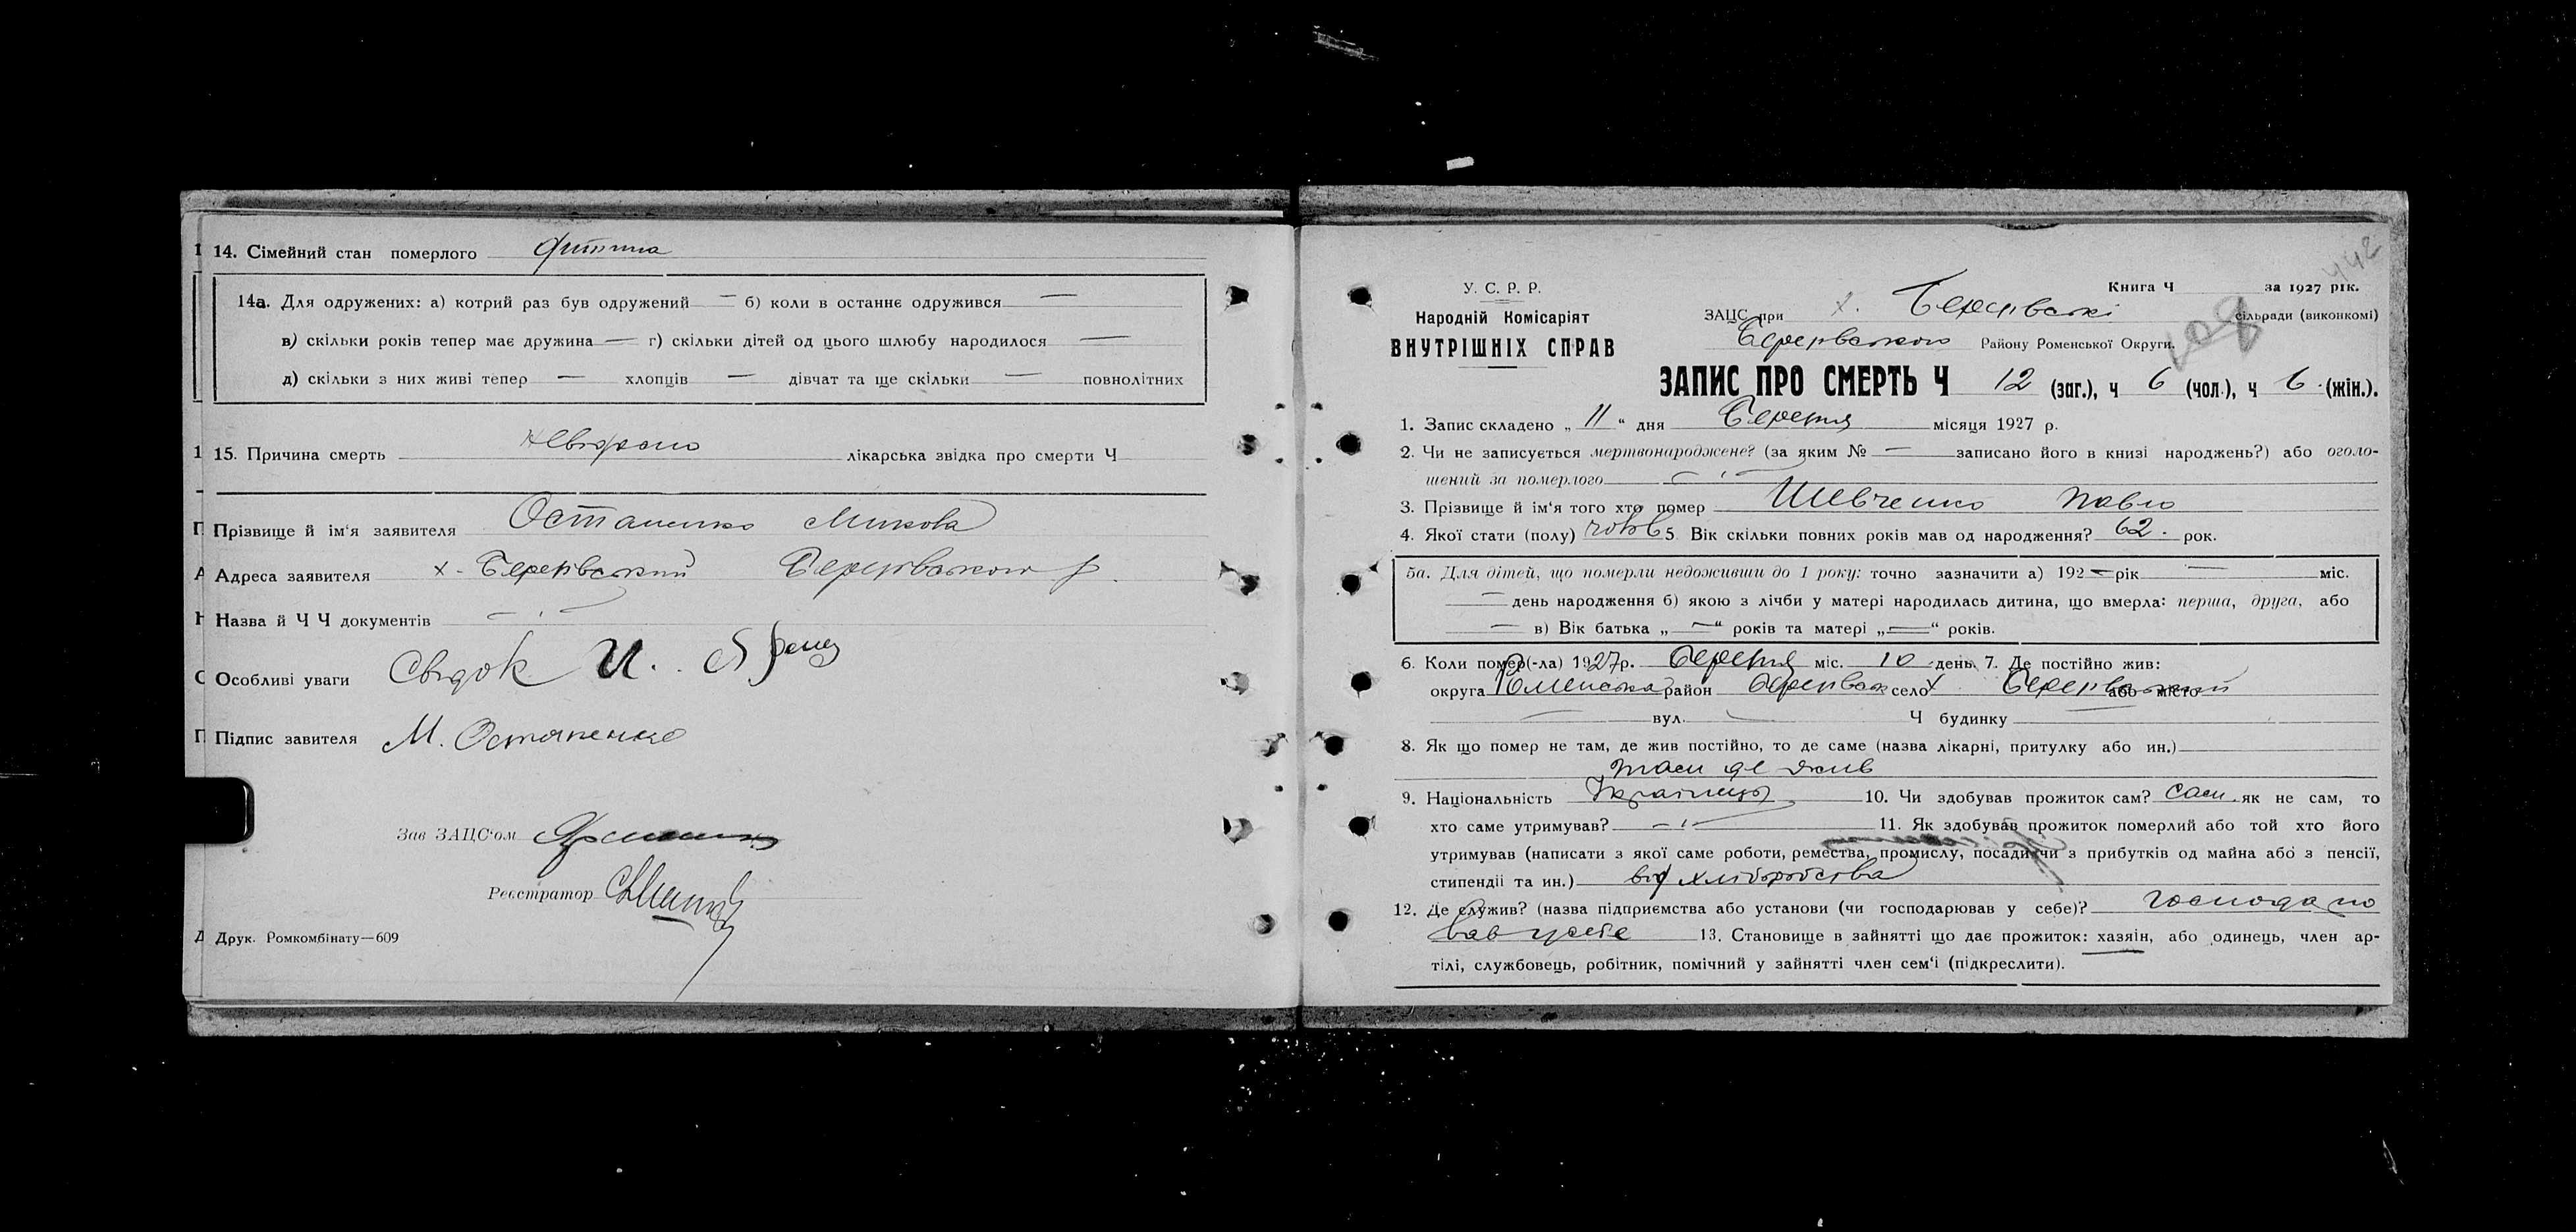 14. Сімейний стан померлого дитина
14а. Для одружених: а) котрий раз був одружений — б) коли в останнє одружився —
в) скільки років тепер має дружина — г) скільки дітей од цього шлюбу народилося —
д) скільки з них живі тепер — хлопців — дівчат та ще скільки — повнолітних
15. Причина смерть невідомо лікарська звідка про смерти Ч
Прізвище й ім'я заявителя Остапенко Микола
Адреса заявителя х. Березівський Березівського р.
Назва й Ч Ч документів —
Особливі уваги Свідок И.
Підпис завителя М. Остапенко
Зав ЗАЦС'ом
Реєстратор
Друк. Ромкомбінату—609
442
У. С. Р. Р.
Народній Комісаріят
ВНУТРІШНІХ СПРАВ
Книга Ч за 1927 рік.
ЗАЦС при х. сільради (виконкомі)
Району Роменської Округи.
ЗАПИС ПРО СМЕРТЬ Ч 12 (заг.), ч 6 (чол.), ч 6 (жін.).
1. Запис складено „ 11 “ дня Березня місяця 1927 р.
2. Чи не записується мертвонароджене? (за яким № — записано його в книзі народжень?) або оголо-
шений за померлого —
3. Прізвище й ім'я того хто помер Шевченко Павло
4. Якої стати (полу) 5. Вік скільки повних років мав од народження? 62. рок.
5а. Для дітей, що померли недоживши до 1 року: точно зазначити а) 192 — рік — міс.
— день народження б) якою з лічби у матері народилась дитина, що вмерла: перша, друга, або
— в) Вік батька „ — “ років та матері „ — “ років.
6. Коли помер(-ла) 1927 р. Березня міс. 10 день. 7. Де постійно жив:
округа Роменська район село х або місто
— вул. — Ч будинку —
8. Як що помер не там, де жив постійно, то де саме (назва лікарні, притулку або ин.)
там де жив
9. Національність Українець 10. Чи здобував прожиток сам? сам. як не сам, то
хто саме утримував? — 11. Як здобував прожиток померлий або той хто його
утримував (написати з якої саме роботи, ремества, промислу, посади чи з прибутків од майна або з пенсії,
стипендії та ин.) від хліборобства
12. Де служив? (назва підприємства або установи (чи господарював у себе)? господарю
вав у себе 13. Становище в зайнятті що дає прожиток: хазяїн, або одинець, член ар-
тілі, службовець, робітник, помічний у зайнятті член сем'ї (підкреслити).